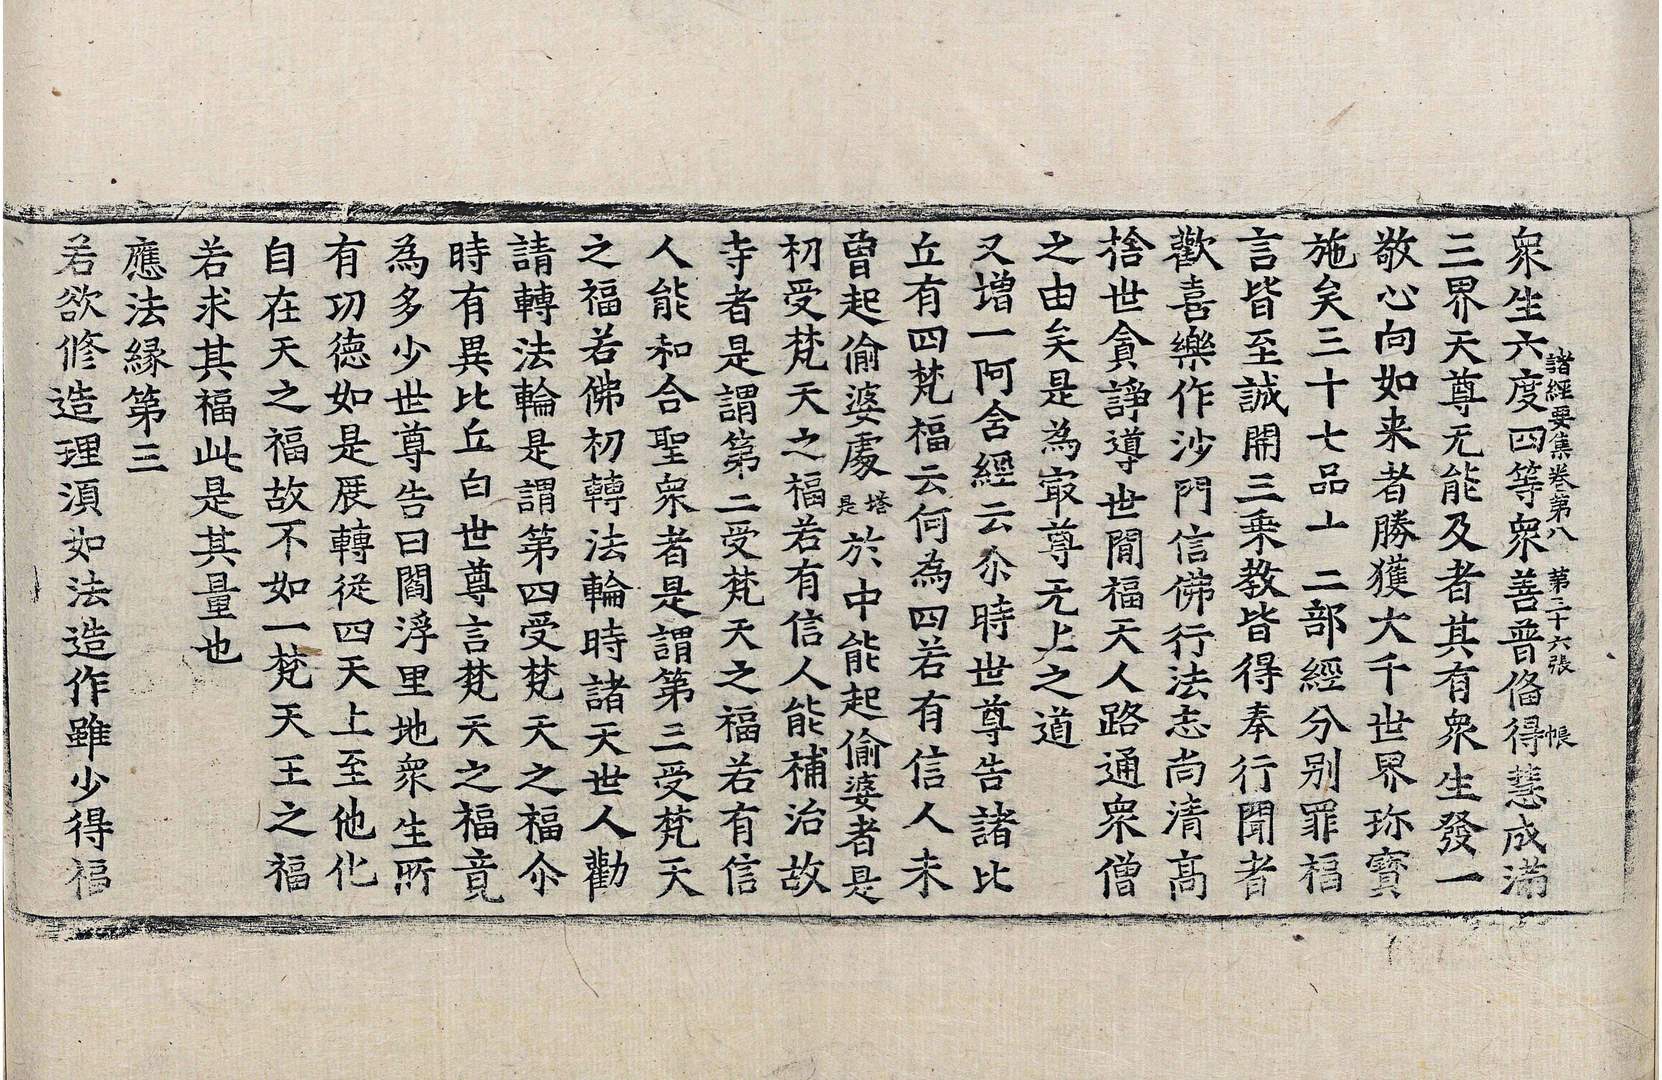 諸經要集卷第八 第三十六張 帳
衆生六度四等衆善普俻得慧成滿
三界天尊无能及者其有衆生發一
敬心向如来者勝獲大千世界珎寳
施矣三十七品十二部經分别罪福
言皆至誠開三乗教皆得奉行聞者
歡喜樂作沙門信佛行法志尚清高
捨世貪諍導世間福天人路通衆僧
之由矣是為㝡尊无上之道
又增一阿含經云尒時世尊告諸比
丘有四梵福云何為四若有信人未
曾起偷婆處塔是於中能起偷婆者是
初受梵天之福若有信人能補治故
寺者是謂第二受梵天之福若有信
人能和合聖衆者是謂第三受梵天
之福若佛初轉法輪時諸天世人勸
請轉法輪是謂第四受梵天之福尒
時有異比丘白世尊言梵天之福竟
為多少世尊告曰閻浮里地衆生所
有功德如是展轉從四天上至他化
自在天之福故不如一梵天王之福
若求其福此是其量也
應法緣第三
若欲修造理湏如法造作雖少得福